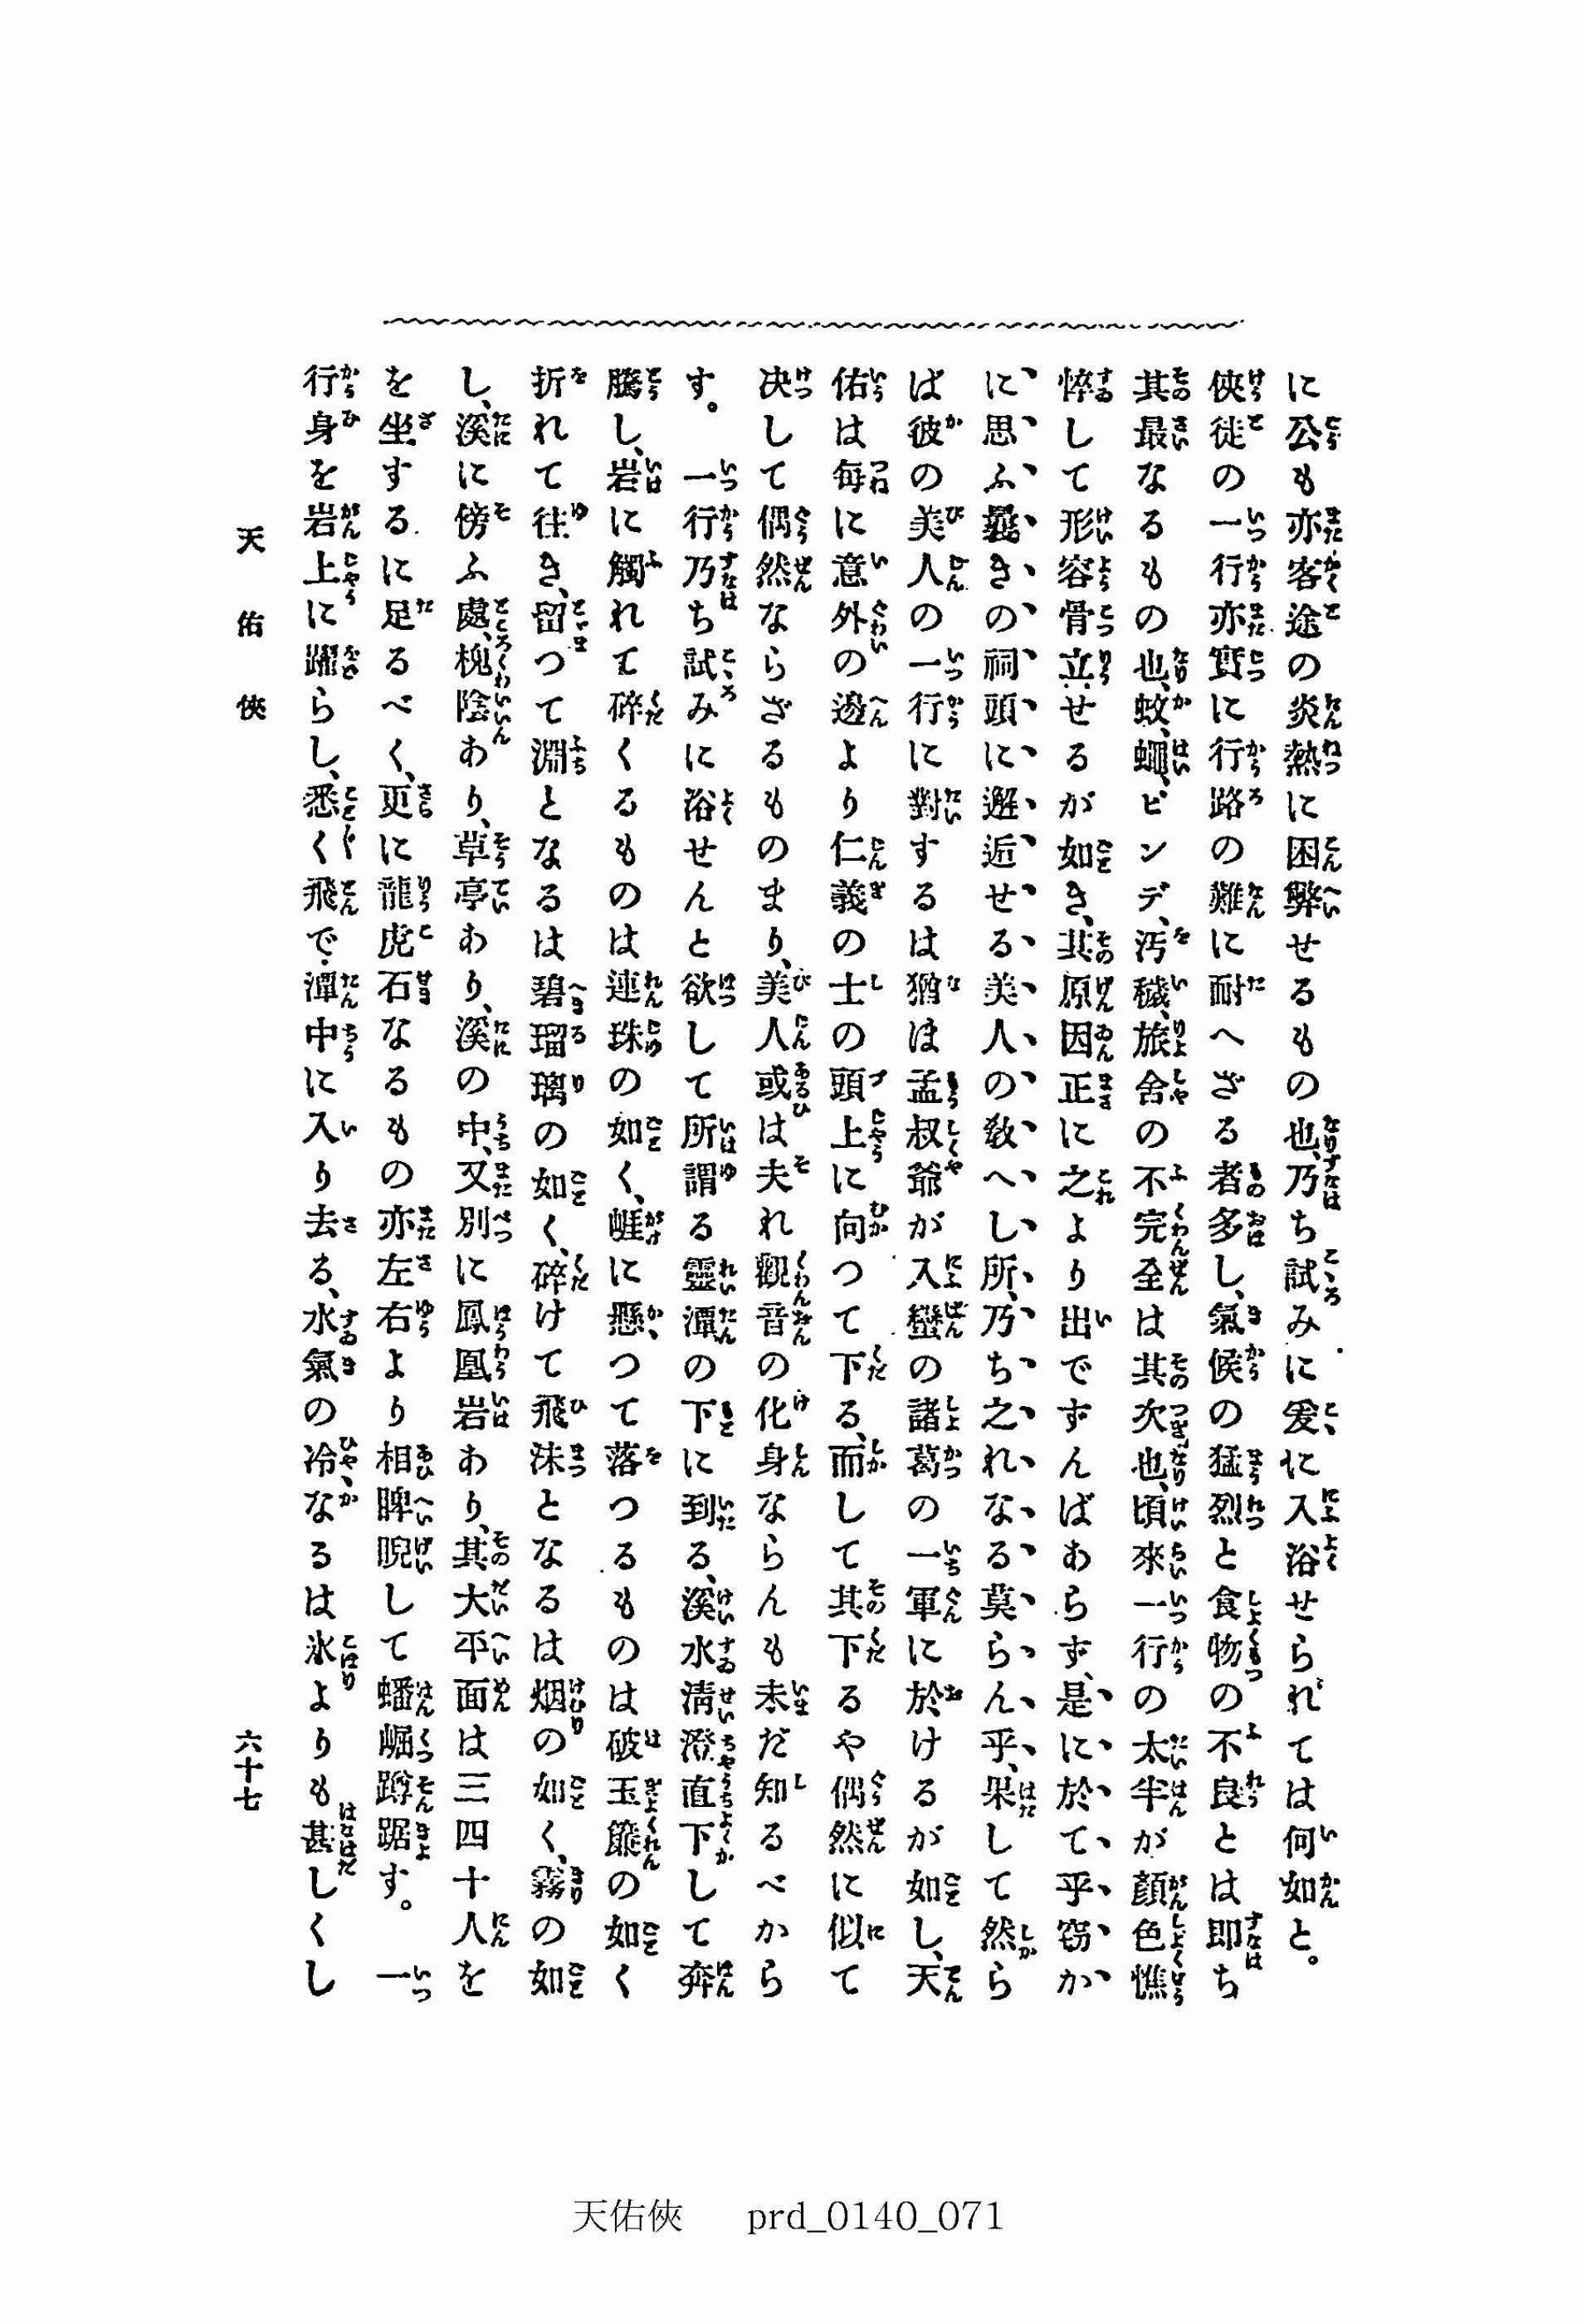 に公も亦客途の炎熱に困弊せるもの也、乃ち試みに爰に入浴せられては何如と。
俠徒の一行亦實に行路の難に耐へざる者多し、氣候の猛烈と食物の不良とは即ち
其最なるもの也、蚊、蠅、ビンデ、汚穢、旅舍の不完全は其次也、頃來一行の太半が顔色憔
悴して形容骨立せるが如き、其原因正に之より出でずんばあらず、是に於て乎窃か
に思ふ曩きの祠頭に邂逅せる美人の敎へし所、乃ち之れなる莫らん乎、果して然ら
ば彼の美人の一行に對するは猶ほ孟叔爺が入蠻の諸葛の一軍に於けるが如し、天
佑は每に意外の邊より仁義の士の頭上に向つて下る、而して其下るや偶然に似て
决して偶然ならざるものまり、美人或は夫れ觀音の化身ならんも未だ知るべから
す。一行乃ち試みに浴せんと欲して所謂る靈潭の下に到る、溪水淸澄直下して奔
騰し、岩に觸れて碎くるものは連珠の如く、崕に懸つて落つるものは破玉簾の如く
折れて往き、留つて淵となるは碧瑠璃の如く、碎けて飛沫となるは烟の如く、霧の如
し、溪に傍ふ處、槐陰あり、草亭わり、溪の中、又別に鳳凰岩あり、其大平面は三四十人を
を坐するに足るべく、更に龍虎石なるもの亦左右より相睥睨して蟠崛蹲踞す。一
行身を岩上に躍らし、悉く飛で潭中に入り去る、水氣の冷なるは氷よりも甚しくし
天佑俠
六十七
天佑俠 prd_0140_071